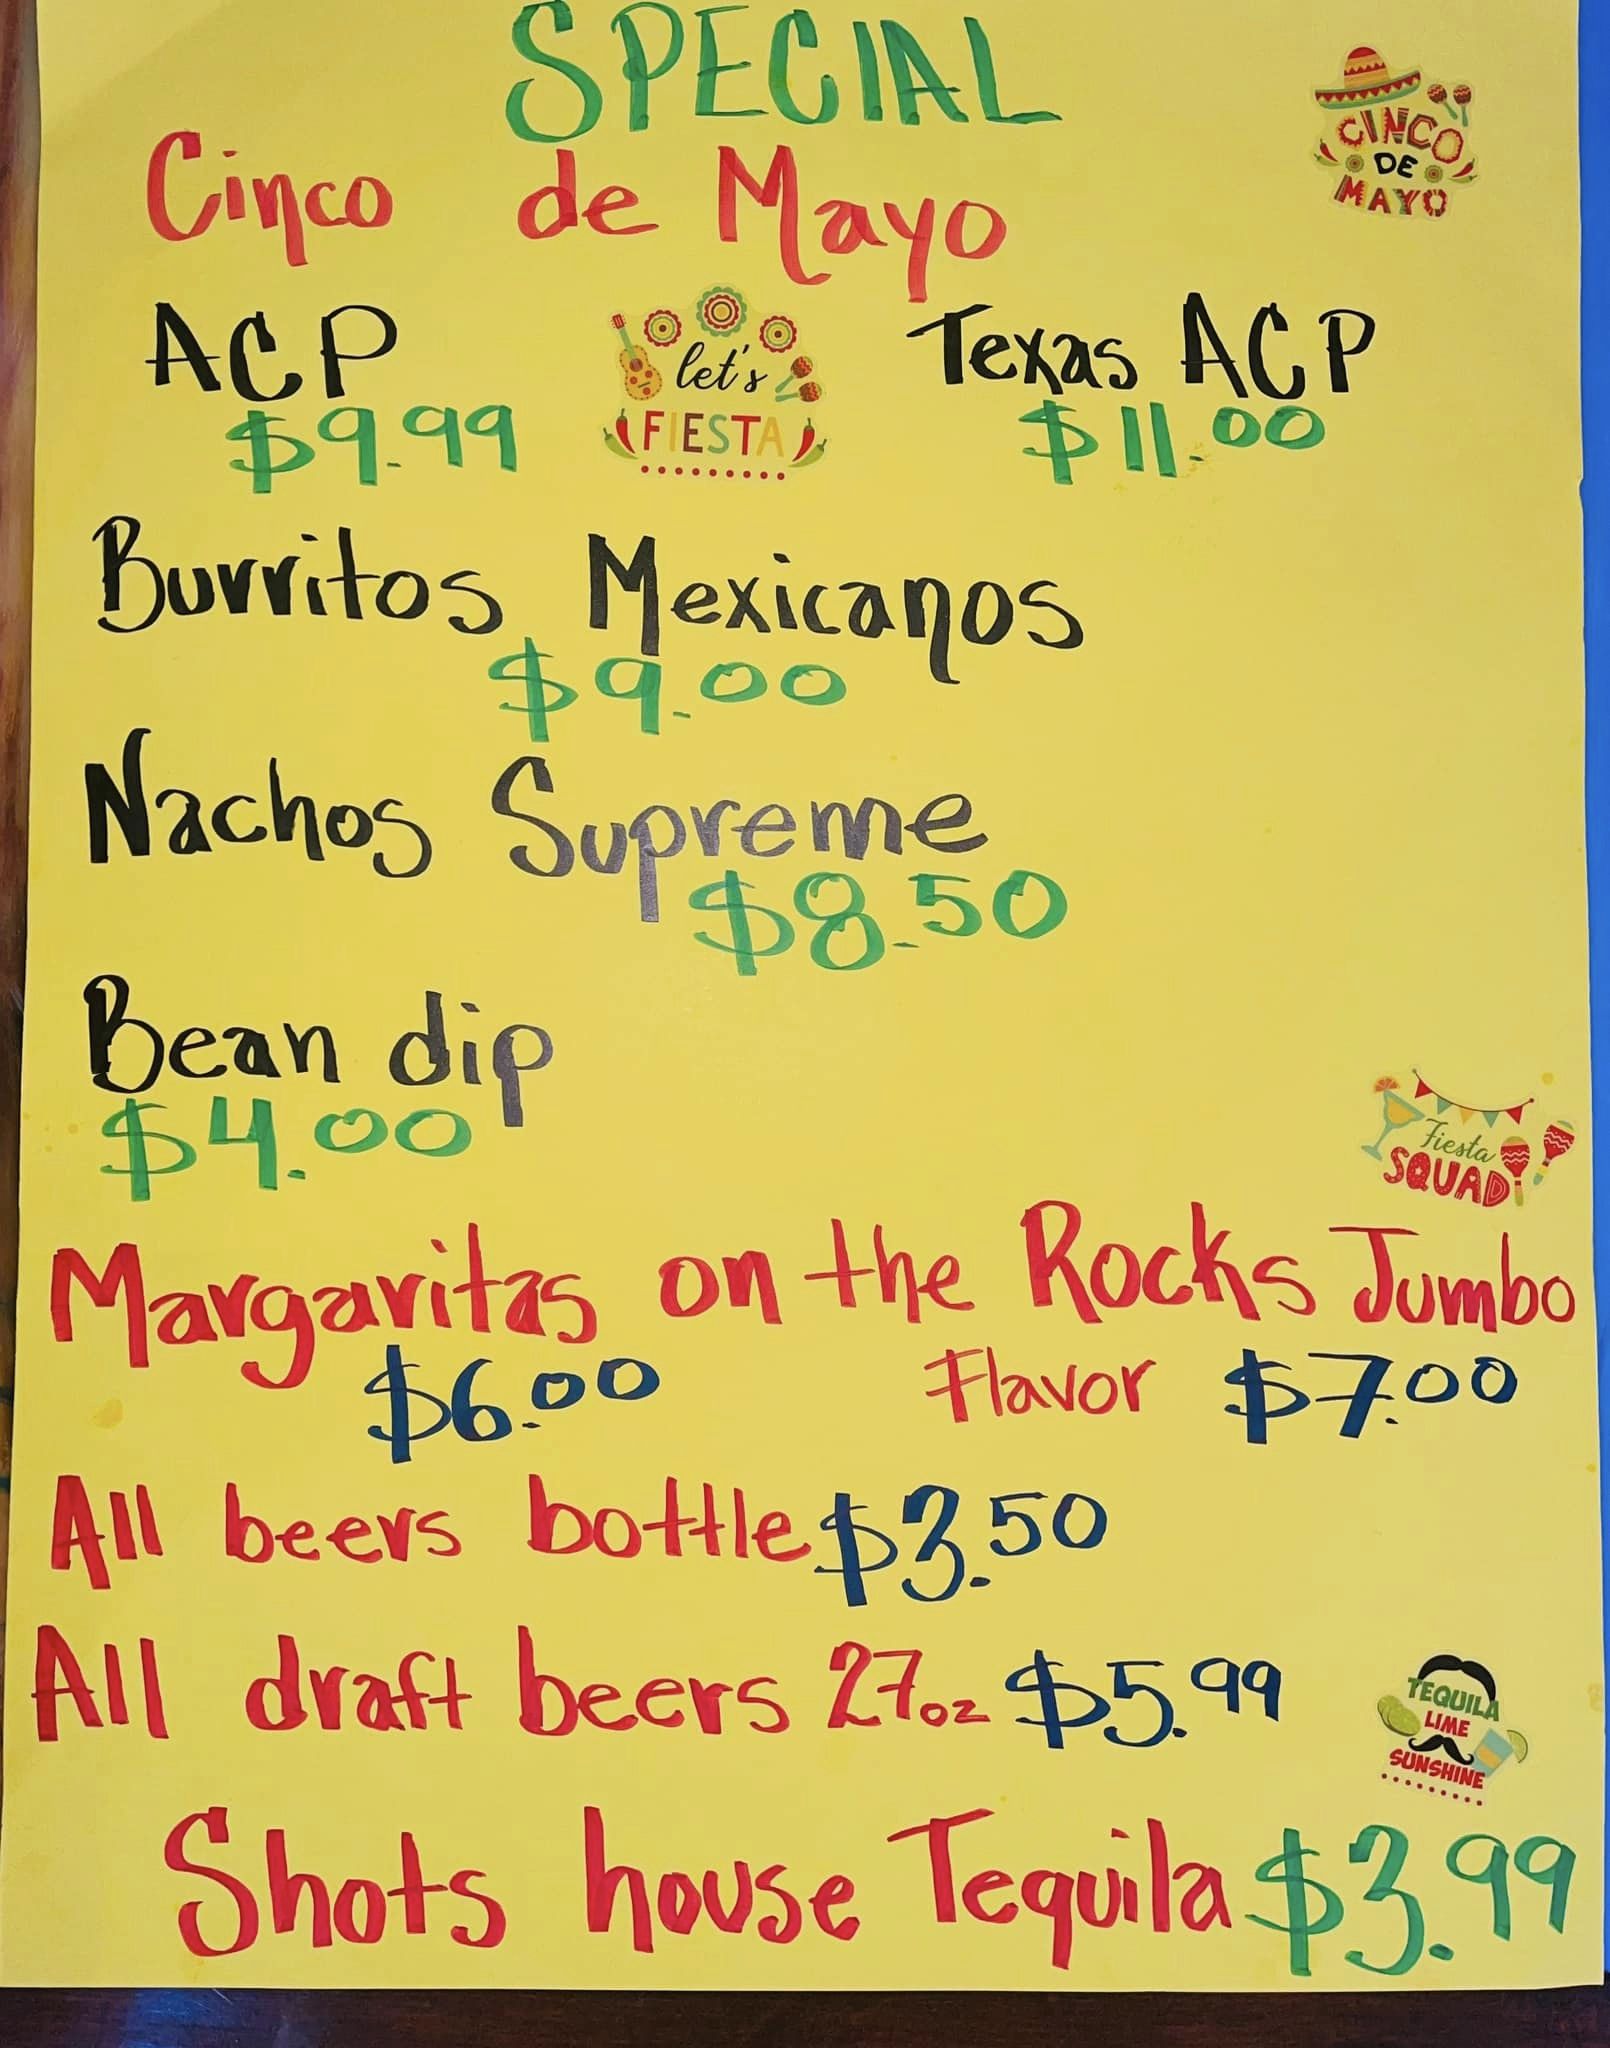 SPECIAL
Cinco de Mayo
CINCO
DE
MAYO
ACP
$9.99
let's
FIESTA
Texas ACP
$11.00
Burritos Mexicanos
$9.00
Nachos Supreme
$8.50
Bean dip
$4.00
Fiesta
SQUAD
Margaritas on the Rocks Jumbo
$6.00 Flavor $7.00
All beers bottle $3.50
All draft beers 27oz $5.99
TEQUILA
LIME
SUNSHINE
Shots house Tequila $3.99